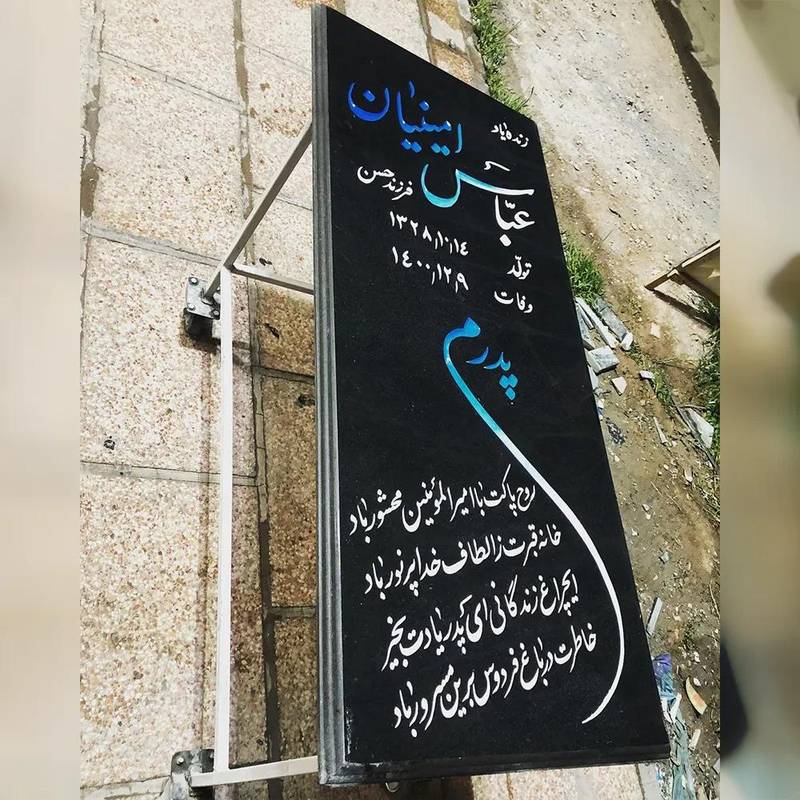 زنده یاد
عبّاس امینیان
فرزند حسن
تولد ۱۳۲۸/۱۰/۱۴
وفات ۱۴۰۰/۱۲/۹
پدرم
روح پاکت با امیرالمؤمنین محشور باد
خانه قبرت ز الطاف خدا پر نور باد
ایچراغ زندگانی ای پدر یادت بخیر
خاطرت در باغ فردوس برین مسرور باد